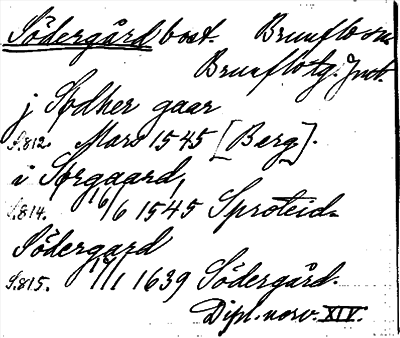 Södergård bost. Brunflo sn.
Brunflo tg. Jmt.
j Sødher gaar
S.812. Mars 1545 [Berg].
i Sørgaard,
S.814. 16/6 1545 Sproteid-
Södergard
S.815. 17/1 1639 Södergård.
Dipl. norv. XIV.